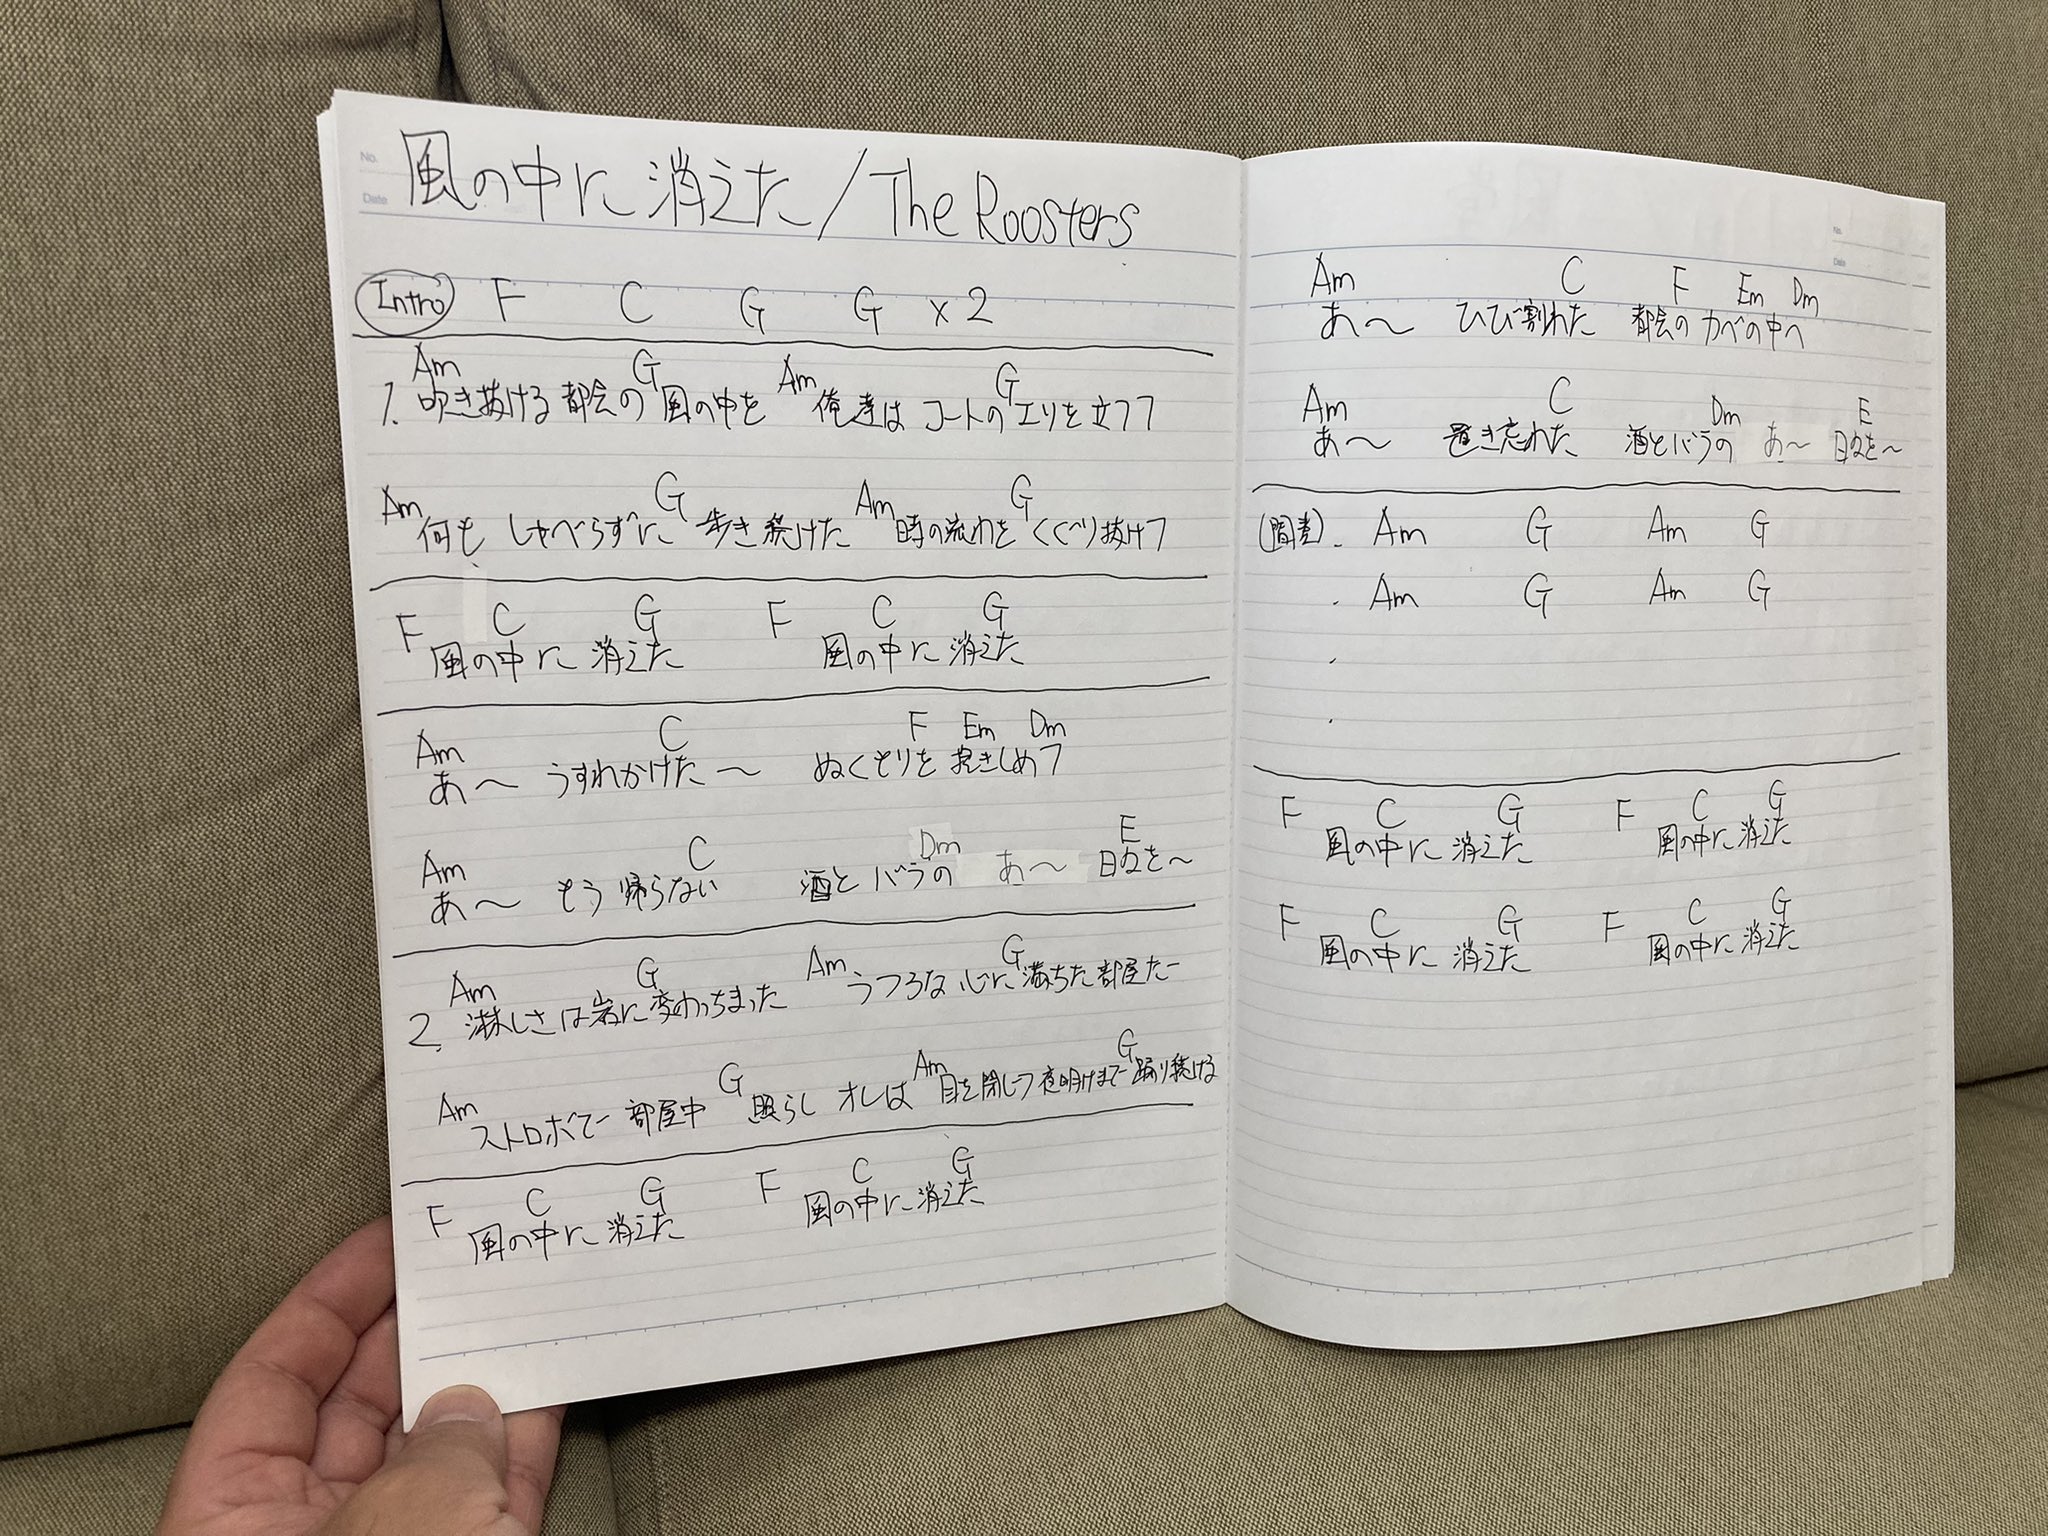 No.
Date
風の中に消えた/The Roosters
Intro F C G G ×2
Am G Am G
1. 吹き抜ける都会の風の中を 俺達はコートのエリを立てて
Am G Am G
何も しゃべらずに 歩き続けた 時の流れを くぐり抜けて
F C G F C G
風の中に 消えた 風の中に 消えた
Am C F Em Dm
あ〜 うすれかけた〜 ぬくもりを 抱きしめて
Am C Dm E
あ〜 もう帰らない 酒とバラの あ〜 日々を〜
Am G Am G
2. 淋しさは岩に変わっちまった うつろな心に満ちた部屋で
Am G Am G
ストロボで 部屋中 照らし オレは 目を閉じて夜明けまで踊り続ける
F C G F C G
風の中に 消えた 風の中に 消えた
No.
Date
Am C F Em Dm
あ〜 ひび割れた 都会の カベの中へ
Am C Dm E
あ〜 置き忘れた 酒とバラの あ〜 日々を〜
(間奏). Am G Am G
. Am G Am G
.
.
F C G F C G
風の中に 消えた 風の中に 消えた
F C G F C G
風の中に 消えた 風の中に 消えた